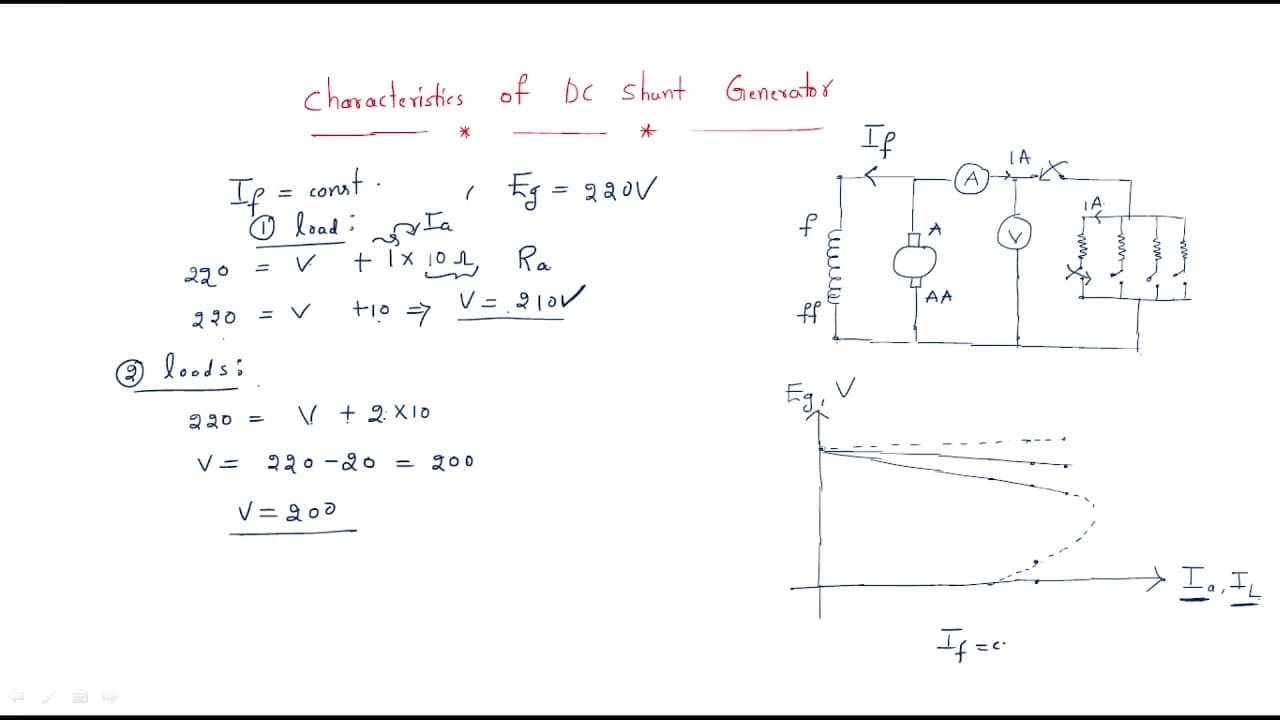 Characteristics of DC Shunt Generator
* *
If = const. , Eg = 220V
① load: Ia
220 = V + 1 × 10 Ω Ra
220 = V +10 ⇒ V = 210V
② loads:
220 = V + 2 × 10
V = 220 - 20 = 200
V = 200
If
A
1A
f
A
V
1A
AA
ff
Eg, V
Ia, IL
If = c.